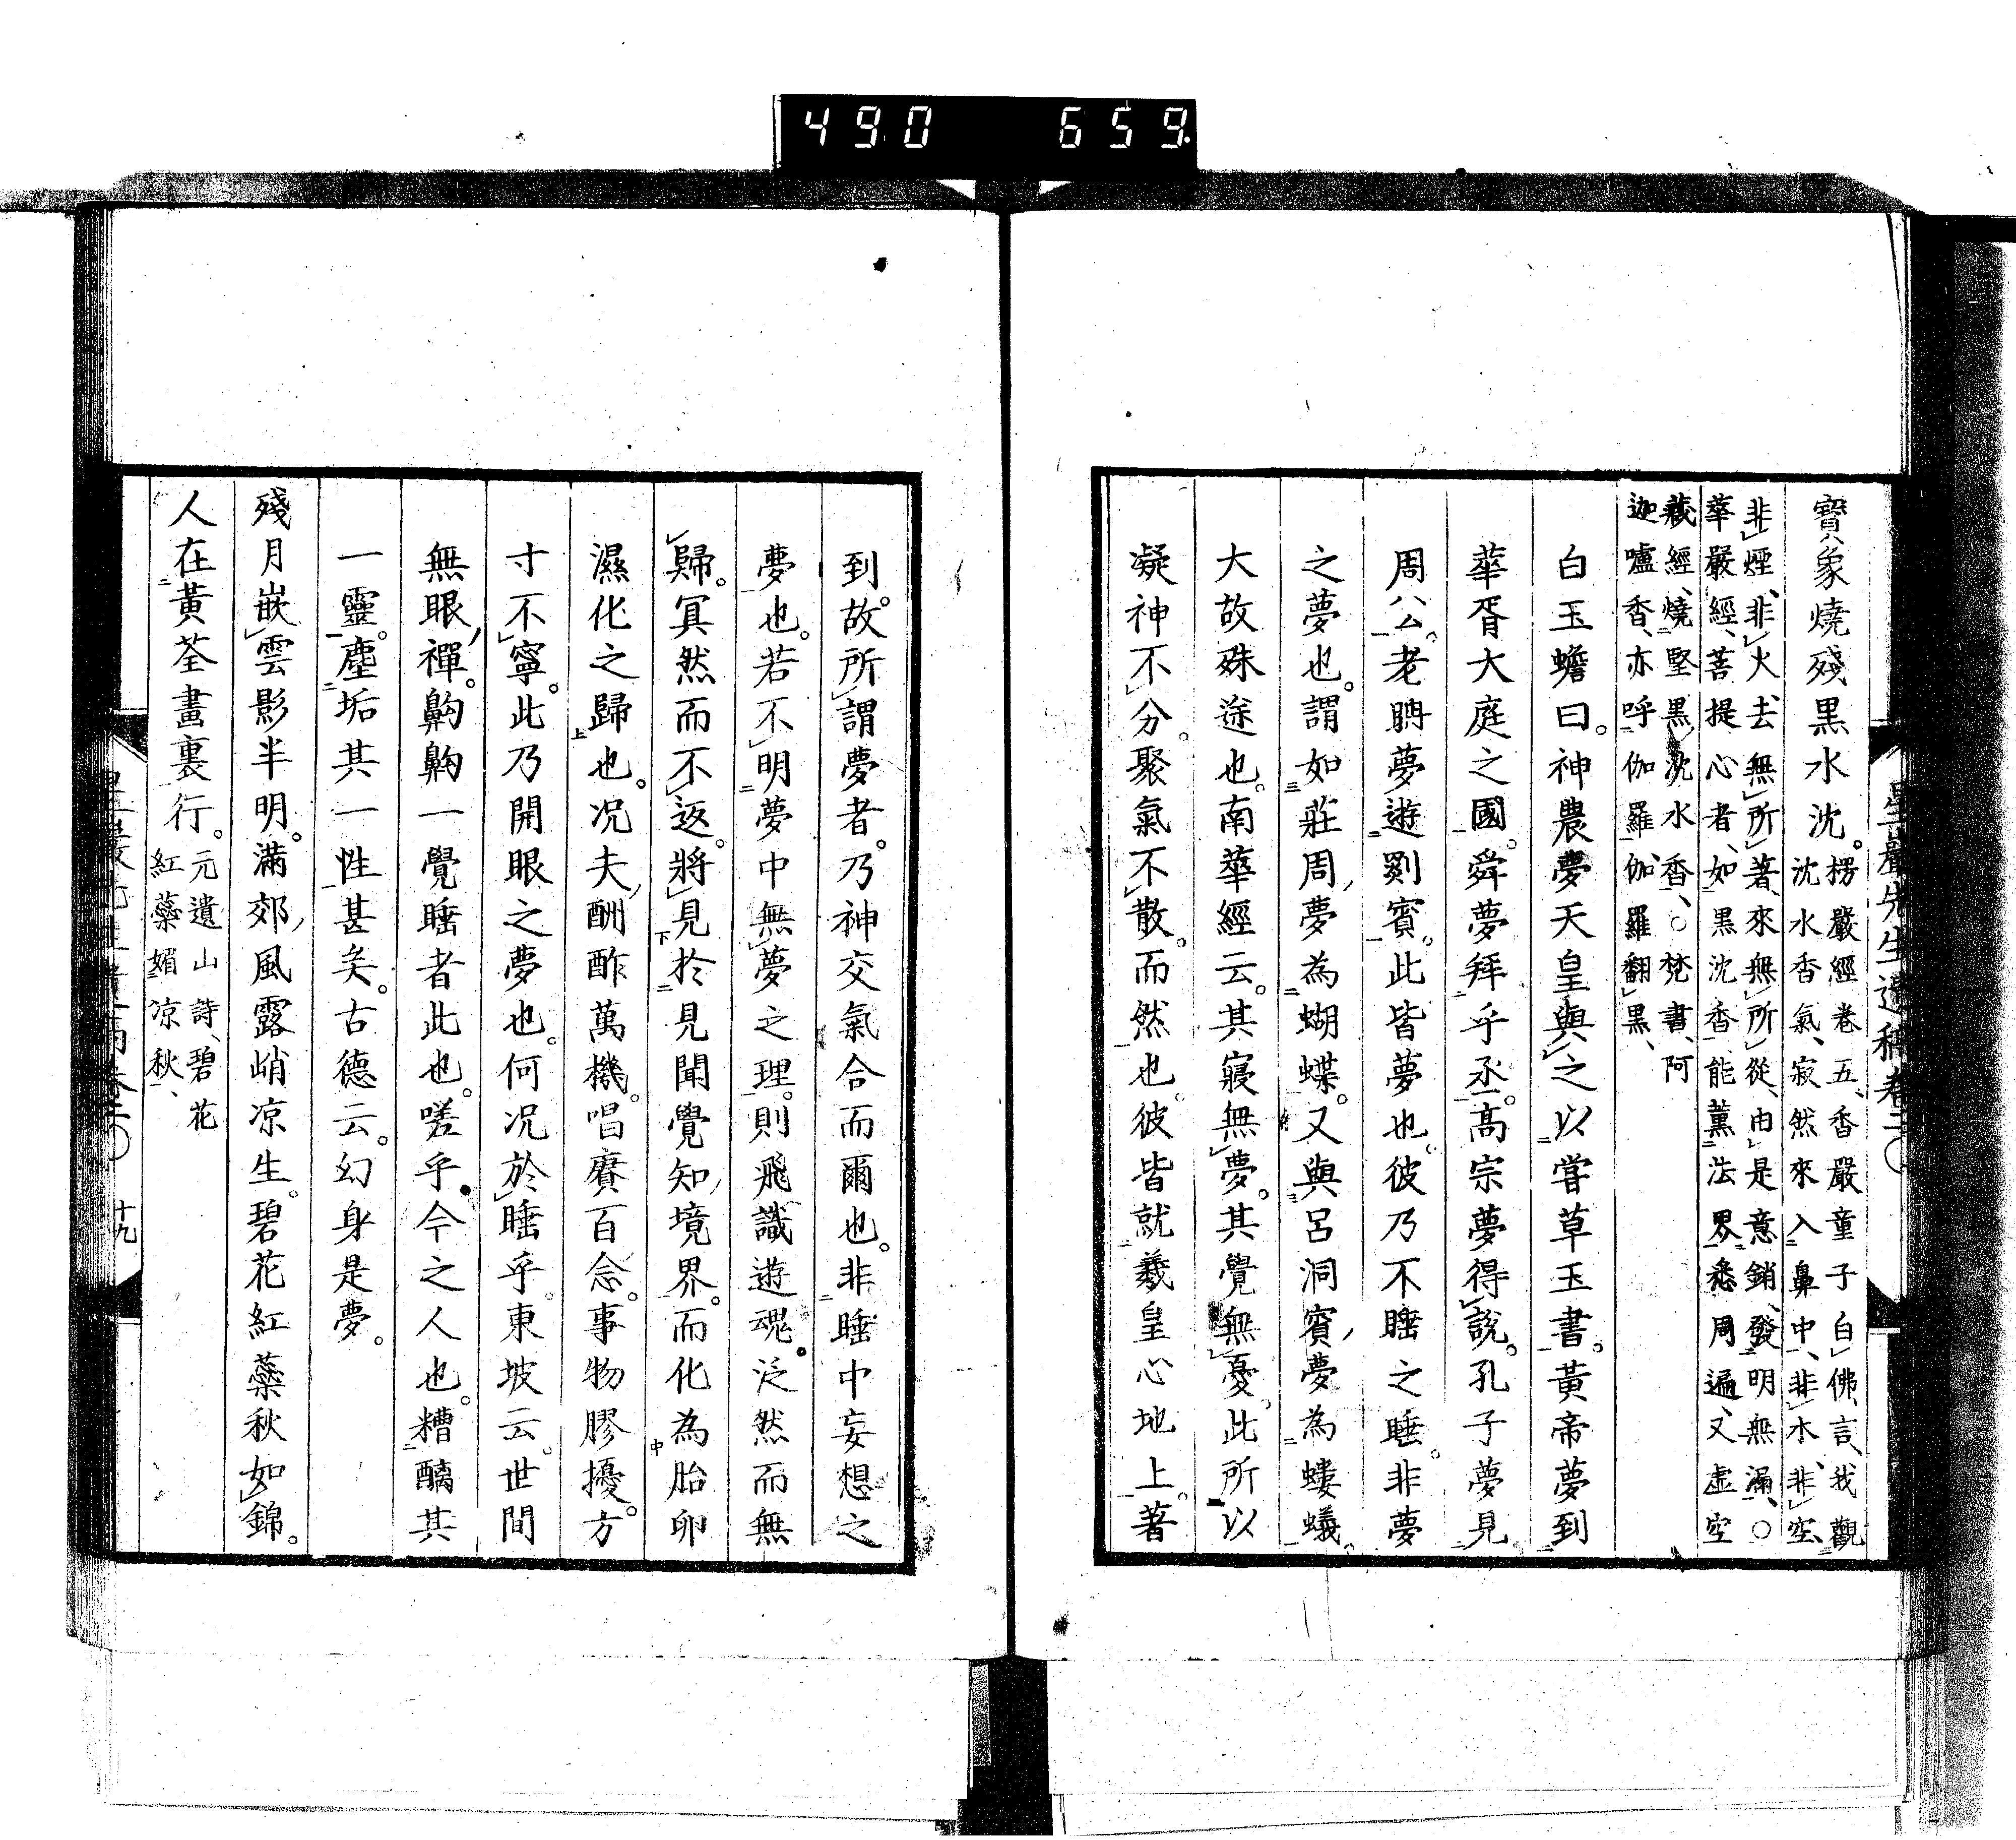 490 659
寶象燒殘黑水沈。楞嚴經卷五、香嚴童子白佛言、我觀
沈水香氣、寂然來入鼻中、非水、非空、
非煙、非火、去無所著、來無所從、由是意銷、發明無漏、○
華嚴經、菩提心者、如黑沈香、能薰法界、悉周遍、又虛空
藏經、燒堅黑沈水香、○梵書、阿
迦嚧香、亦呼伽羅、伽羅翻黑、
白玉蟾曰。神農夢天皇與之以嘗草玉書。黃帝夢到
華胥大庭之國。舜夢拜乎丞。高宗夢得說。孔子夢見
周公。老聃夢遊罽賓。此皆夢也。彼乃不睡之睡。非夢
之夢也。謂如莊周夢為蝴蝶。又與呂洞賓夢為螻蟻。
大故殊途也。南華經云。其寢無夢。其覺無憂。此所以
凝神不分。聚氣不散。而然也。彼皆就羲皇心地上。著
星巖先生遺稿 卷二〇
到。故所謂夢者。乃神交氣合而爾也。非睡中妄想之
夢也。若不明夢中無夢之理。則飛識遊魂。泛然而無
歸。冥然而不返。將見於見聞覺知境界。而化為胎卵
濕化之歸也。况夫酬酢萬機。唱賡百念。事物膠擾。方
寸不寧。此乃開眼之夢也。何况於睡乎。東坡云。世間
無眼禪。齁齁一覺睡者此也。嗟乎。今之人也。糟醨其
一靈。塵垢其一性。甚矣。古德云。幻身是夢。
殘月嵌雲影半明。滿郊風露峭凉生。碧花紅蘂秋如錦。
人在黃荃畫裏行。元遺山詩、碧花
紅蘂媚凉秋、
十九